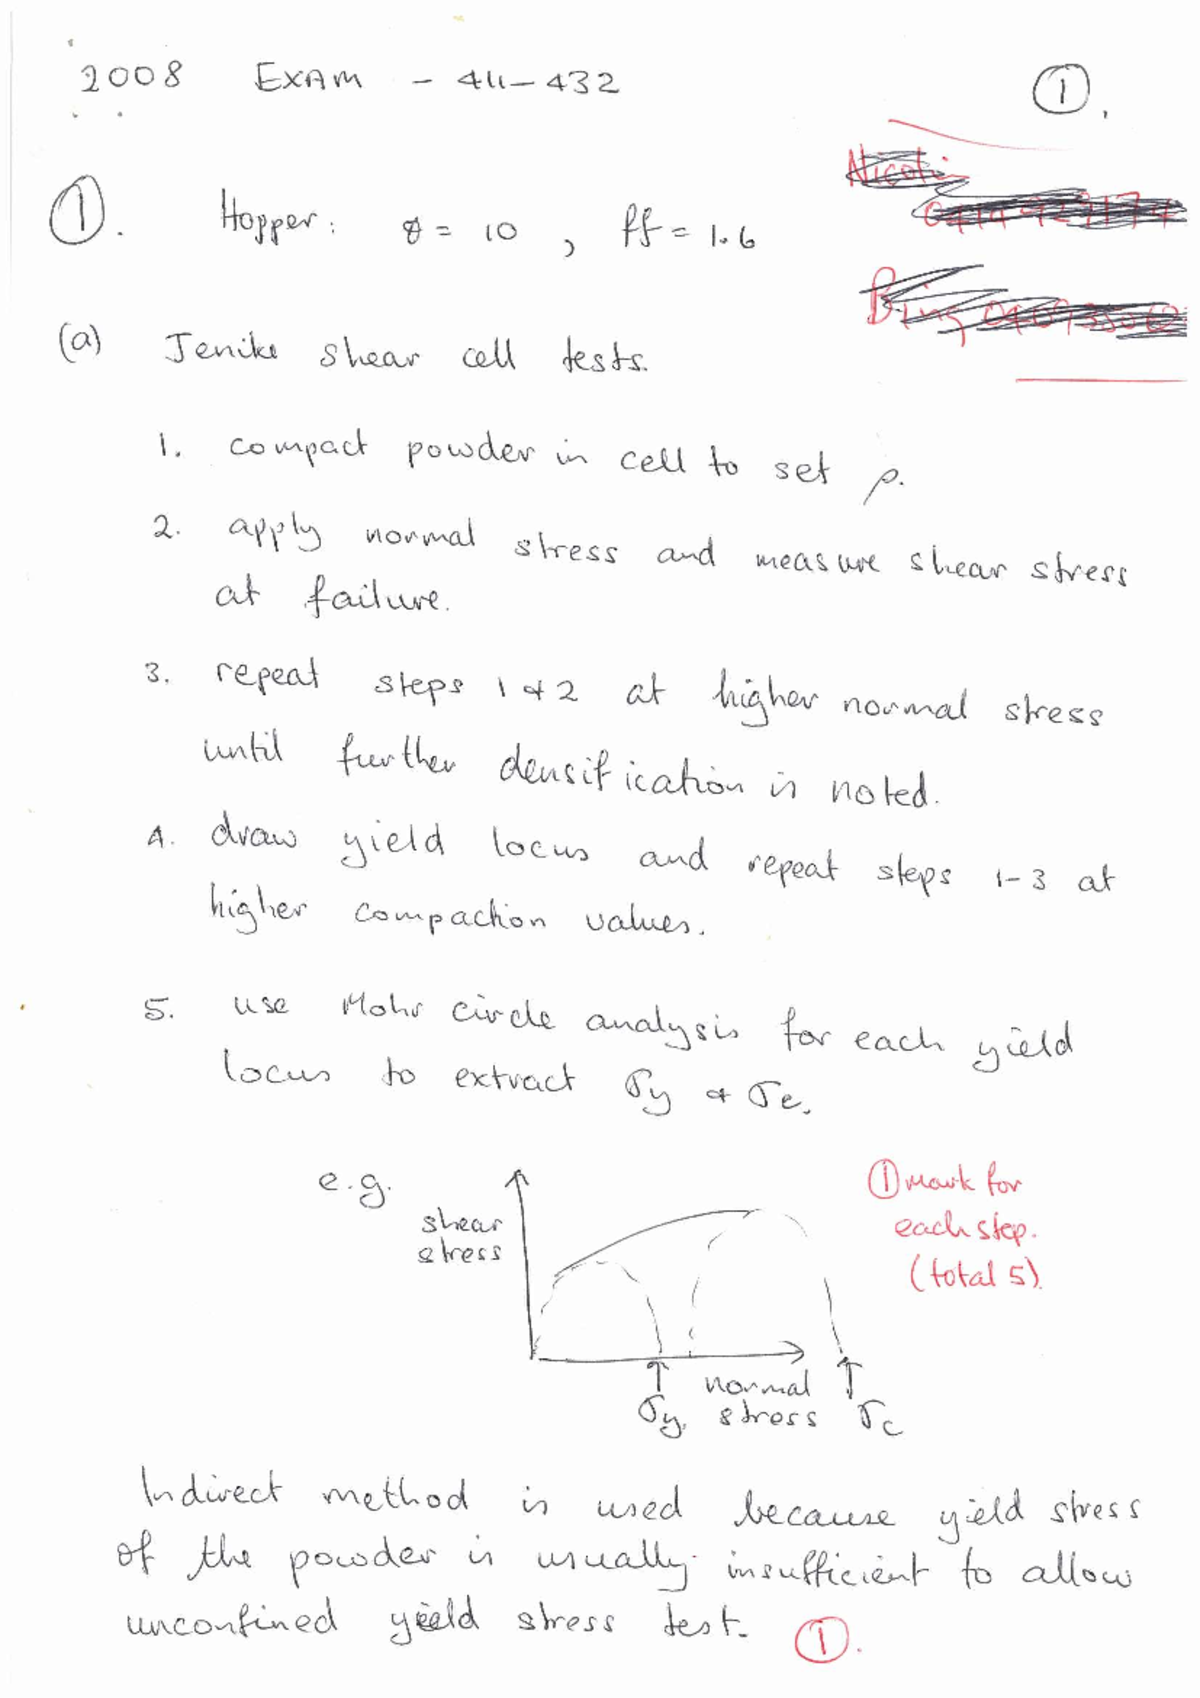 2008 EXAM - 411-432
①.
①. Hopper: θ = 10 , ff = 1.6
(a) Jenike shear cell tests.
1. compact powder in cell to set ρ.
2. apply normal stress and measure shear stress
at failure.
3. repeat steps 1 & 2 at higher normal stress
until further densification is noted.
4. draw yield locus and repeat steps 1-3 at
higher compaction values.
5. use Mohr circle analysis for each yield
locus to extract σy & σc.
e.g.
shear
stress
① mark for
each step.
(total 5)
normal
stress
σy
σc
Indirect method is used because yield stress
of the powder is usually insufficient to allow
unconfined yield stress test. ①.